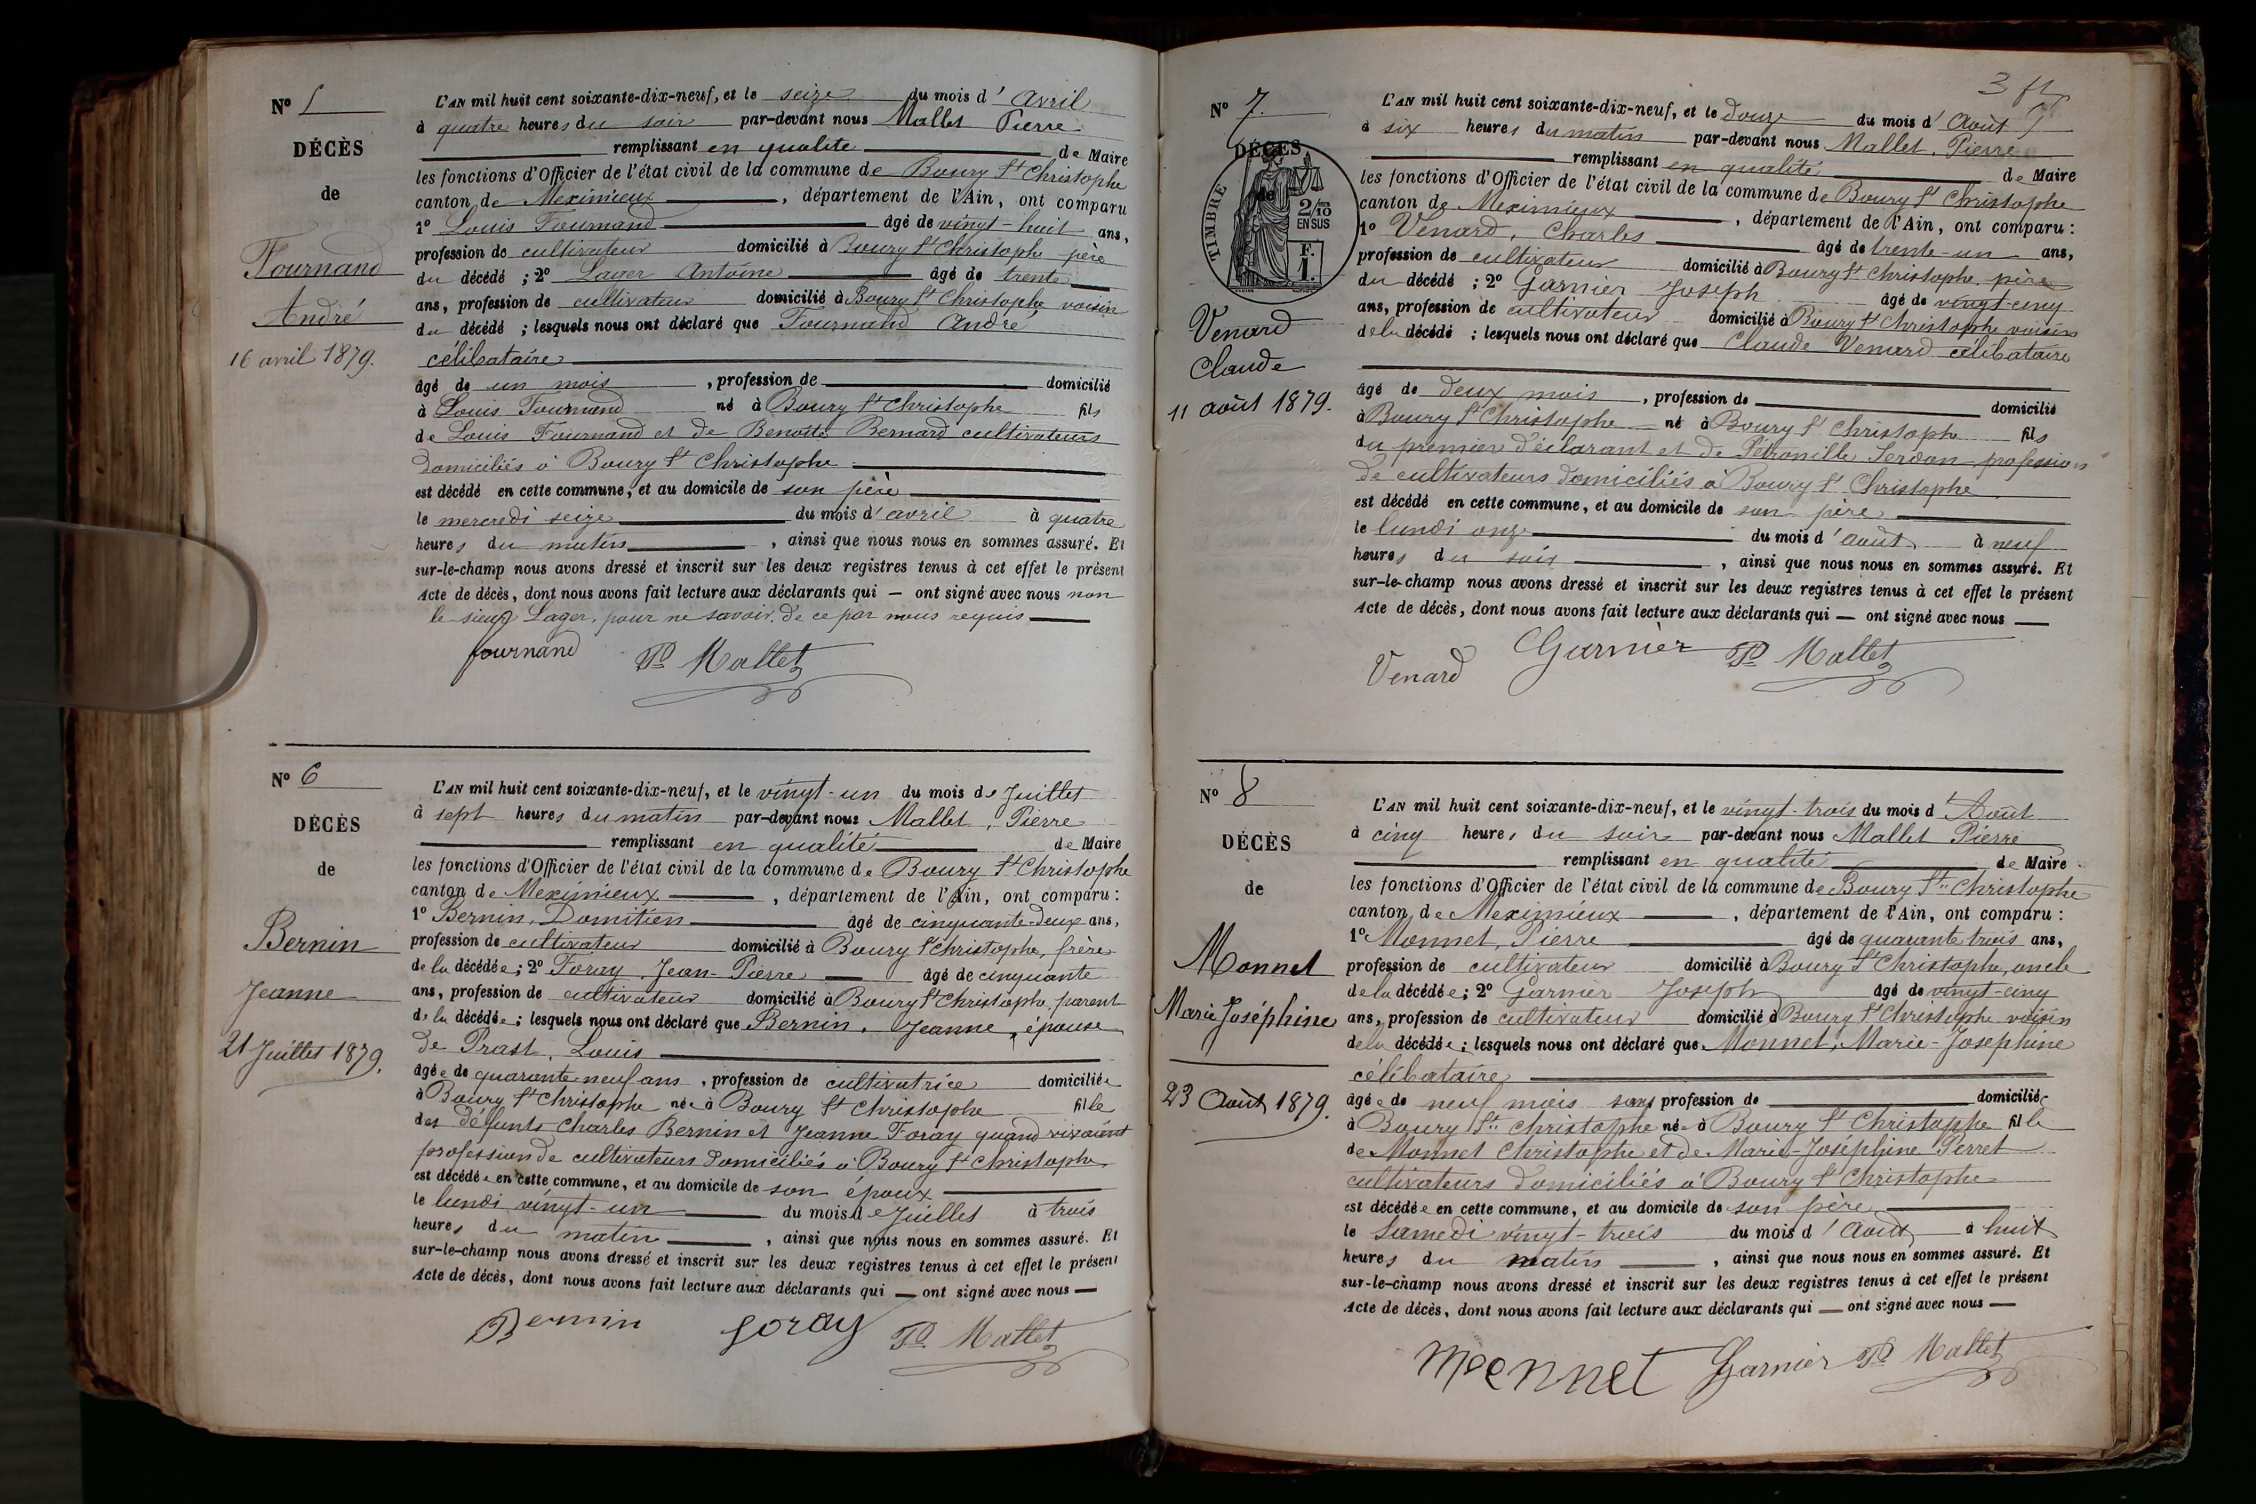 Nº 5
DÉCÈS
de
Fournand
André
16 avril 1879.
L'AN mil huit cent soixante-dix-neuf, et le seize du mois d'Avril
à quatre heures du soir par-devant nous Mallet Pierre
remplissant en qualité de Maire
les fonctions d'Officier de l'état civil de la commune de Bourg St Christophe
canton de Meximieux, département de l'Ain, ont comparu
1º Louis Fournand âgé de vingt-huit ans,
profession de cultivateur domicilié à Bourg St Christophe père
du décédé ; 2º Lager Antoine âgé de trente
ans, profession de cultivateur domicilié à Bourg St Christophe voisin
du décédé ; lesquels nous ont déclaré que Fournand André
célibataire
âgé de un mois, profession de domicilié
à Louis Fournand né à Bourg St Christophe fils
de Louis Fournand et de Benoîte Bernard cultivateurs
domiciliés à Bourg St Christophe
est décédé en cette commune, et au domicile de son père
le mercredi seize du mois d'avril à quatre
heures du matin, ainsi que nous nous en sommes assuré. Et
sur-le-champ nous avons dressé et inscrit sur les deux registres tenus à cet effet le présent
Acte de décès, dont nous avons fait lecture aux déclarants qui — ont signé avec nous non
le sieur Lager, pour ne savoir, de ce par nous requis
fournand Pre Mallet
Nº 6
DÉCÈS
de
Bernin
Jeanne
21 Juillet 1879.
L'AN mil huit cent soixante-dix-neuf, et le vingt-un du mois de Juillet
à sept heures du matin par-devant nous Mallet, Pierre
remplissant en qualité de Maire
les fonctions d'Officier de l'état civil de la commune de Bourg St Christophe
canton de Meximieux, département de l'Ain, ont comparu :
1º Bernin, Domitien âgé de cinquante-deux ans,
profession de cultivateur domicilié à Bourg St Christophe, frère
de la décédée ; 2º Foray, Jean-Pierre âgé de cinquante
ans, profession de cultivateur domicilié à Bourg St Christophe, parent
de la décédée ; lesquels nous ont déclaré que Bernin, Jeanne, épouse
de Prast, Louis
âgée de quarante neuf ans, profession de cultivatrice domiciliée
à Bourg St Christophe née à Bourg St Christophe fille
des défunts Charles Bernin et Jeanne Foray quand vivaient
profession de cultivateurs domiciliés à Bourg St Christophe
est décédée en cette commune, et au domicile de son époux
le lundi vingt-un du mois de Juillet à trois
heures du matin, ainsi que nous nous en sommes assuré. Et
sur-le-champ nous avons dressé et inscrit sur les deux registres tenus à cet effet le présent
Acte de décès, dont nous avons fait lecture aux déclarants qui — ont signé avec nous —
Bernin foray Pre Mallet
3
Nº 7.
DÉCÈS
de
TIMBRE
2/10
EN SUS
F.
1.
Venard
Claude
11 août 1879.
L'AN mil huit cent soixante-dix-neuf, et le douze du mois d'Août
à six heures du matin par-devant nous Mallet, Pierre
remplissant en qualité de Maire
les fonctions d'Officier de l'état civil de la commune de Bourg St Christophe
canton de Meximieux, département de l'Ain, ont comparu :
1º Venard, Charles âgé de trente-un ans,
profession de cultivateur domicilié à Bourg St Christophe, père
du décédé ; 2º Garnier Joseph âgé de vingt-cinq
ans, profession de cultivateur domicilié à Bourg St Christophe voisin
de la décédé ; lesquels nous ont déclaré que Claude Venard célibataire
âgé de deux mois, profession de domicilié
à Bourg St Christophe né à Bourg St Christophe fils
du premier déclarant et de Pétronille Serdon profession
de cultivateurs domiciliés à Bourg St Christophe
est décédé en cette commune, et au domicile de son père
le lundi onze du mois d'août à neuf
heures du soir, ainsi que nous nous en sommes assuré. Et
sur-le-champ nous avons dressé et inscrit sur les deux registres tenus à cet effet le présent
Acte de décès, dont nous avons fait lecture aux déclarants qui — ont signé avec nous —
Venard Garnier Pre Mallet
Nº 8
DÉCÈS
de
Monnet
Marie Joséphine
23 Août 1879.
L'AN mil huit cent soixante-dix-neuf, et le vingt-trois du mois d'Août
à cinq heures du soir par-devant nous Mallet Pierre
remplissant en qualité de Maire
les fonctions d'Officier de l'état civil de la commune de Bourg St Christophe
canton de Meximieux, département de l'Ain, ont comparu :
1º Monnet, Pierre âgé de quarante trois ans,
profession de cultivateur domicilié à Bourg St Christophe, oncle
de la décédée ; 2º Garnier Joseph âgé de vingt-cinq
ans, profession de cultivateur domicilié à Bourg St Christophe voisin
de la décédée ; lesquels nous ont déclaré que Monnet, Marie-Josephine
célibataire
âgée de neuf mois sans profession de domiciliée
à Bourg St Christophe née à Bourg St Christophe fille
de Monnet Christophe et de Marie-Joséphine Perret
cultivateurs domiciliés à Bourg St Christophe
est décédée en cette commune, et au domicile de son père
le Samedi vingt-trois du mois d'Août à huit
heures du matin, ainsi que nous nous en sommes assuré. Et
sur-le-champ nous avons dressé et inscrit sur les deux registres tenus à cet effet le présent
Acte de décès, dont nous avons fait lecture aux déclarants qui — ont signé avec nous —
Monnet Garnier Pre Mallet